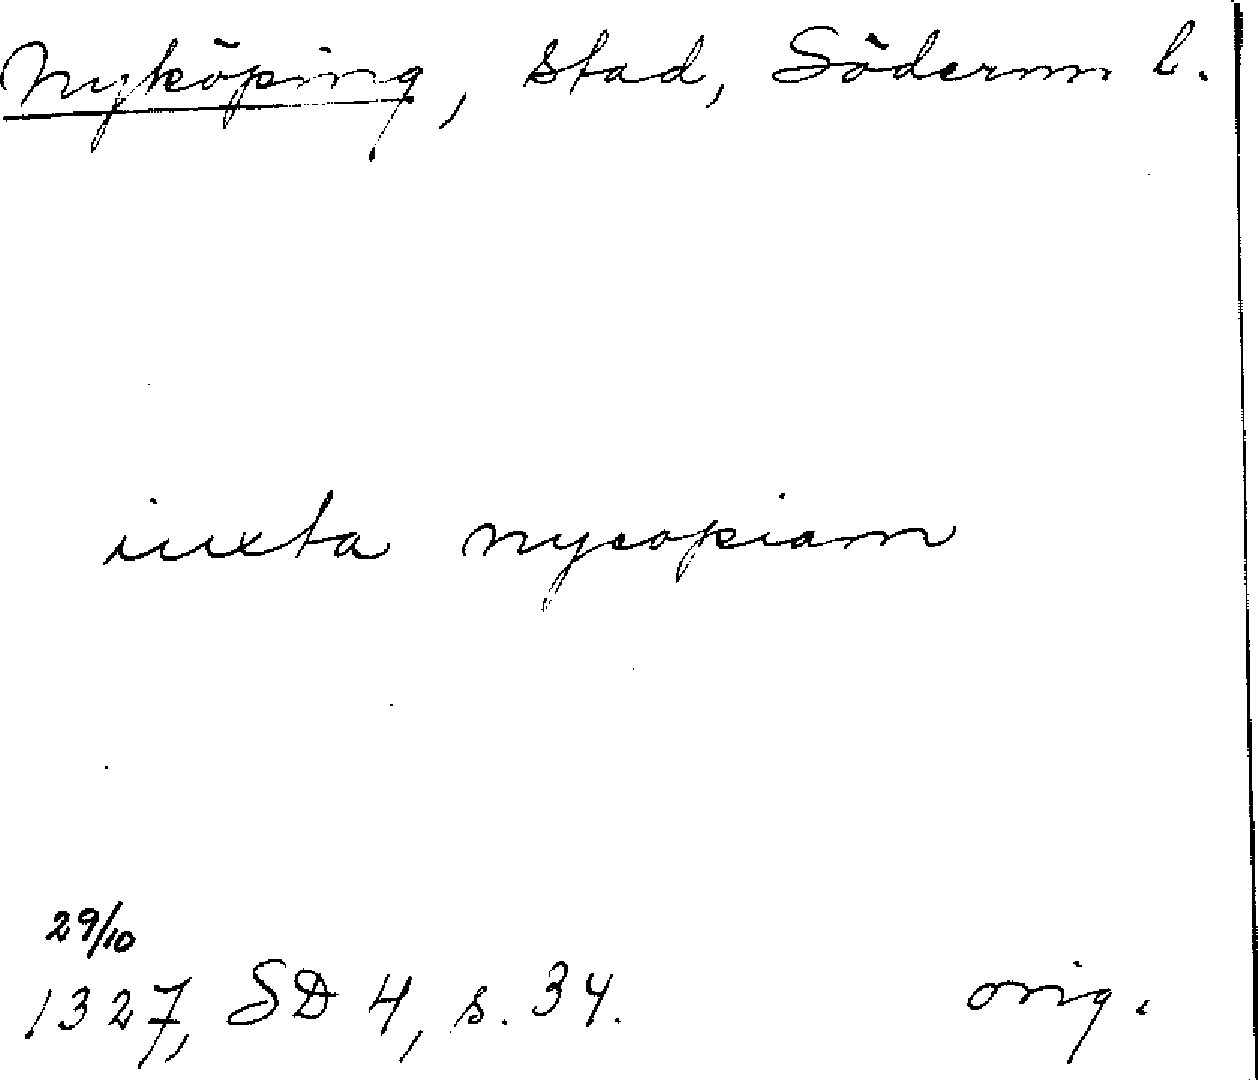 Nyköping, stad, Söderm l.
iuxta nycopiam
29/10
1327, SD 4, s. 34. orig.